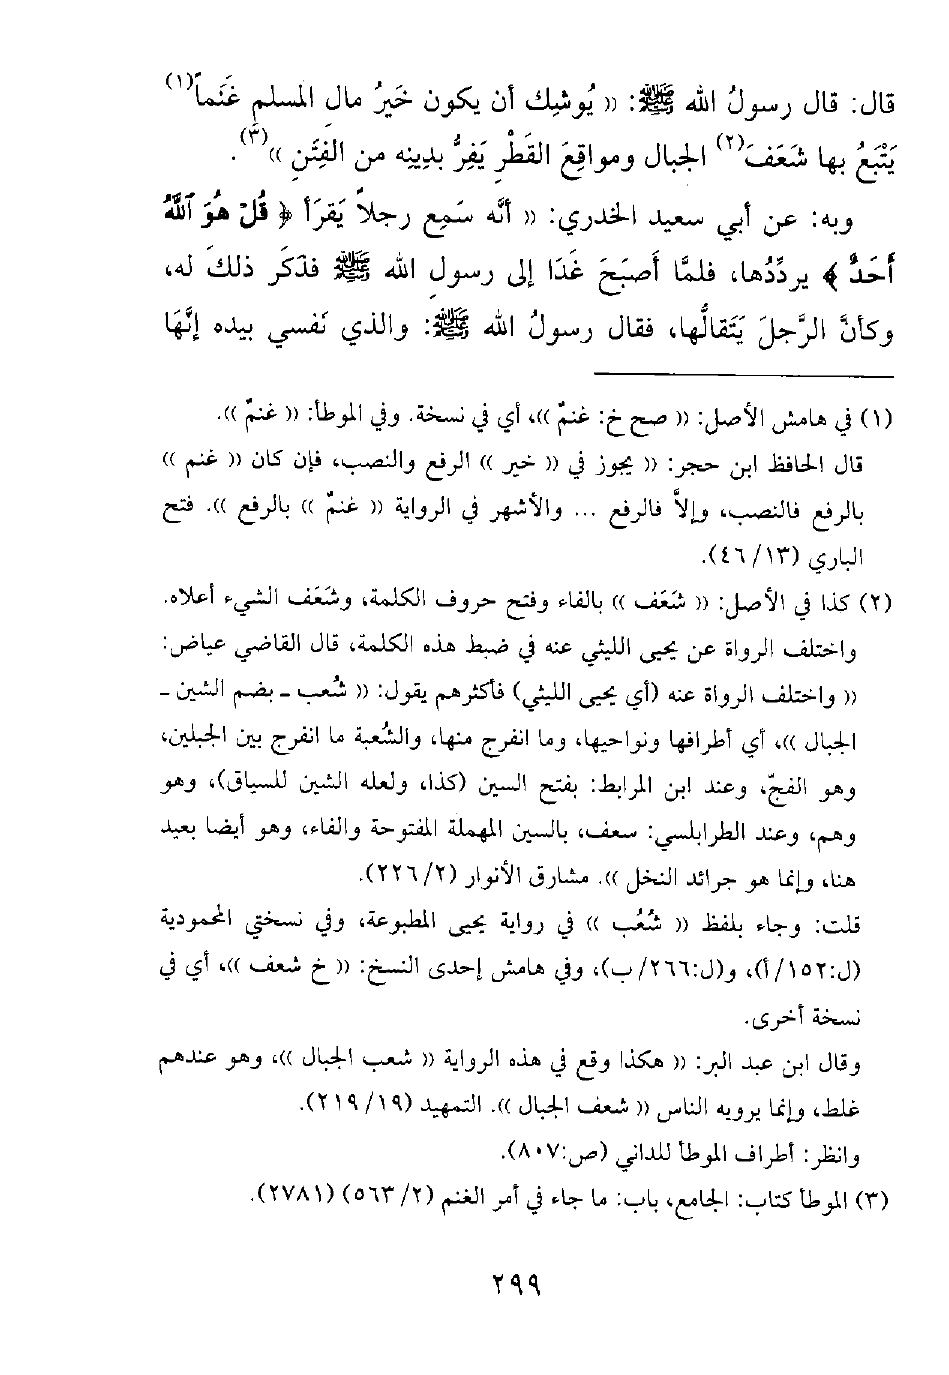 قال: قال رسولُ الله ﷺ: « يُوشِك أن يكون خَيرُ مال المسلمِ غَنَماً(١)
يَتْبَعُ بها شَعَفَ(٢) الجبال ومواقِعَ القَطْرِ يَفِرُّ بدِينِه من الفِتَنِ »(٣).
وبه: عن أبي سعيد الخدري: « أنَّه سَمِع رجلاً يَقرَأ ﴿ قُلْ هُوَ ٱللَّهُ
أَحَدٌ ﴾ يردِّدُها، فلمَّا أَصبَحَ غَدَا إلى رسولِ الله ﷺ فذَكَر ذلكَ له،
وكأنَّ الرَّجلَ يَتَقالُّها، فقال رسولُ الله ﷺ: والذي نَفسي بيده إنَّهَا
(١) في هامش الأصل: « صح خ: غنمٌ »، أي في نسخة. وفي الموطأ: « غنمٌ ».
قال الحافظ ابن حجر: « يجوز في « خير » الرفع والنصب، فإن كان « غنم »
بالرفع فالنصب، وإلاَّ فالرفع ... والأشهر في الرواية « غنمٌ » بالرفع ». فتح
الباري (٤٦/١٣).
(٢) كذا في الأصل: « شَعَف » بالفاء وفتح حروف الكلمة، وشَعَف الشيء أعلاه.
واختلف الرواة عن يحيى الليثي عنه في ضبط هذه الكلمة، قال القاضي عياض:
« واختلف الرواة عنه (أي يحيى الليثي) فأكثرهم يقول: « شُعب ـ بضم الشين ـ
الجبال »، أي أطرافها ونواحيها، وما انفرج منها، والشُعبة ما انفرج بين الجبلين،
وهو الفجّ، وعند ابن المرابط: بفتح السين (كذا، ولعله الشين للسياق)، وهو
وهم، وعند الطرابلسي: سعف، بالسين المهملة المفتوحة والفاء، وهو أيضا بعيد
هنا، وإنما هو جرائد النخل ». مشارق الأنوار (٢٢٦/٢).
قلت: وجاء بلفظ « شُعُب » في رواية يحيى المطبوعة، وفي نسختي المحمودية
(ل:١٥٢/أ)، و(ل:٢٦٦/ب)، وفي هامش إحدى النسخ: « خ شعف »، أي في
نسخة أخرى.
وقال ابن عبد البر: « هكذا وقع في هذه الرواية « شعب الجبال »، وهو عندهم
غلط، وإنما يرويه الناس « شعف الجبال ». التمهيد (٢١٩/١٩).
وانظر: أطراف الموطأ للداني (ص:٨٠٧).
(٣) الموطأ كتاب: الجامع، باب: ما جاء في أمر الغنم (٥٦٣/٢) (٢٧٨١).
٢٩٩